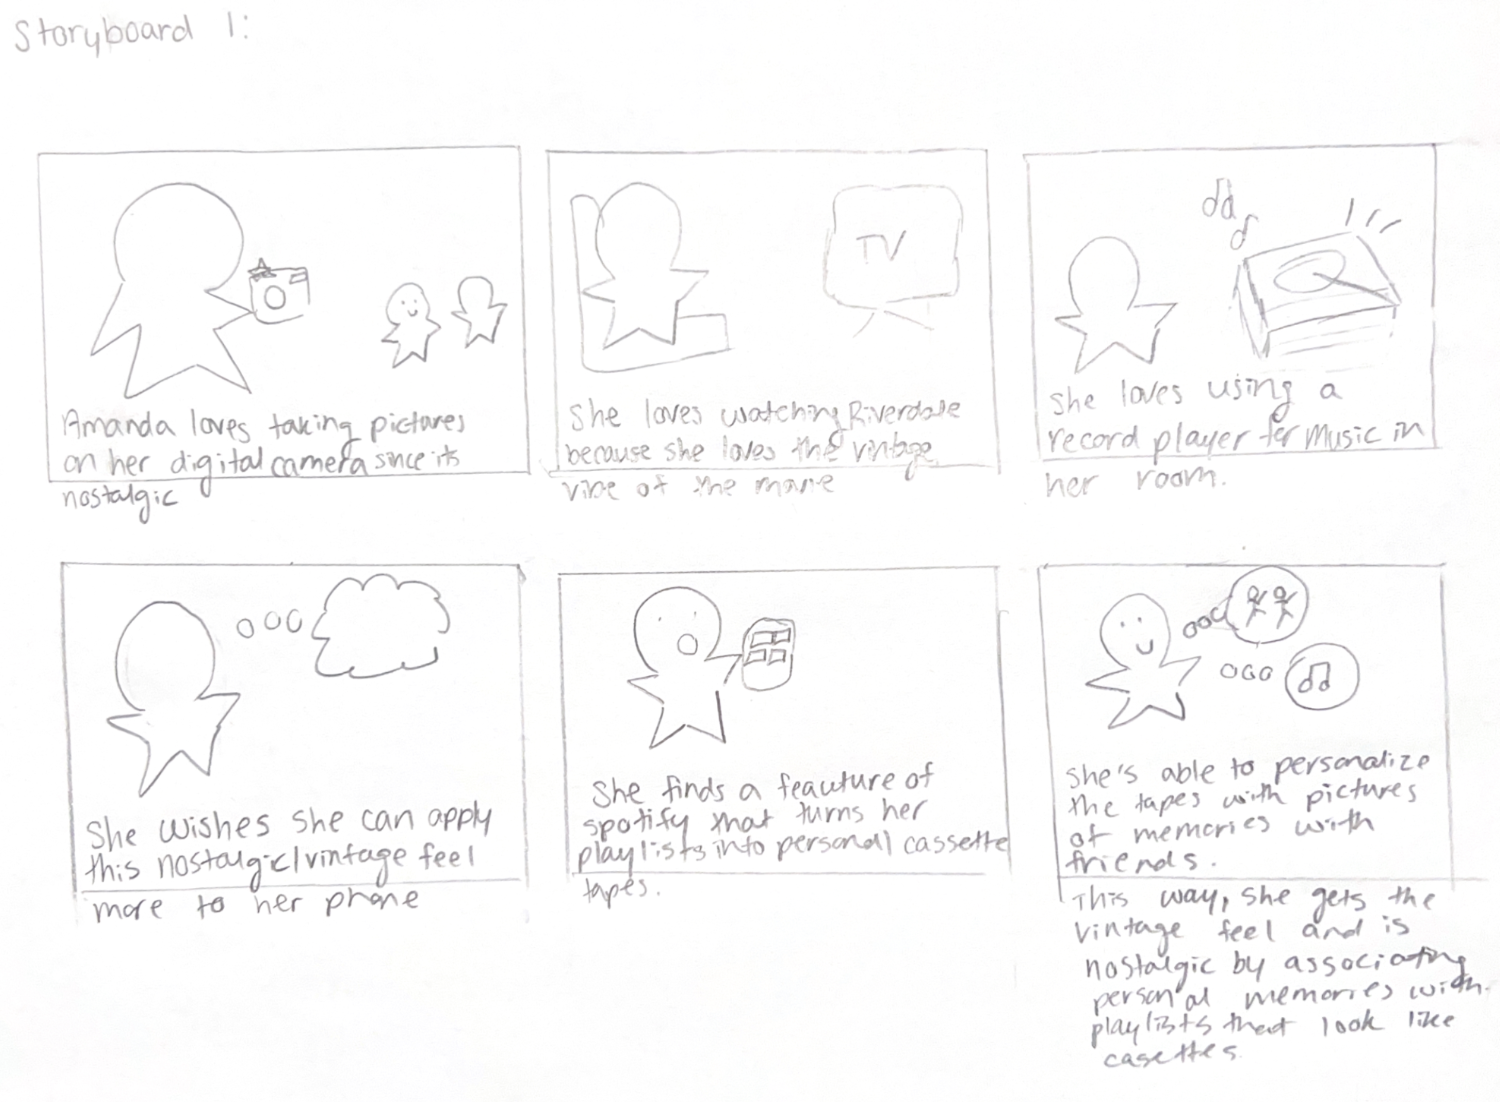 Storyboard 1:
Amanda loves taking pictures
on her digital camera since its
nostalgic
TV
She loves watching Riverdale
because she loves the vintage
vibe of the movie
She loves using a
record player for music in
her room.
She wishes she can apply
this nostalgic/vintage feel
more to her phone
She finds a feauture of
spotify that turns her
playlists into personal cassette
tapes.
She's able to personalize
the tapes with pictures
of memories with
friends.
This way, she gets the
vintage feel and is
nostalgic by associating
personal memories with
playlists that look like
casettes.